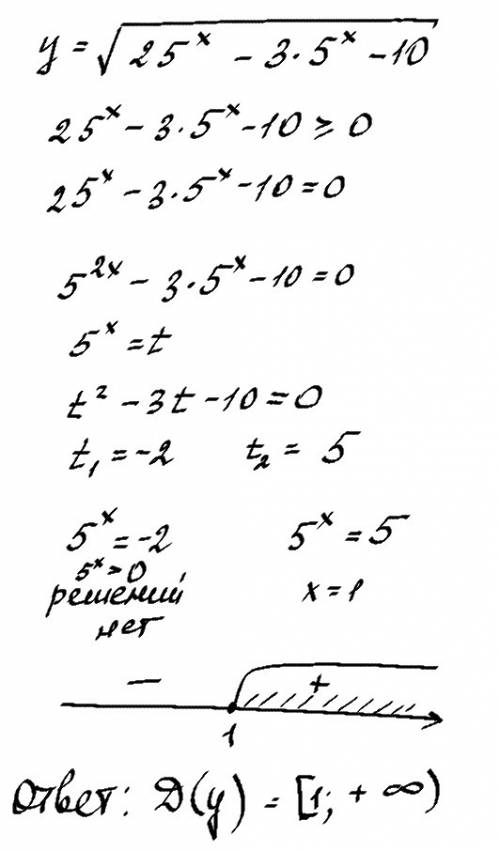 y = √(25ˣ - 3·5ˣ - 10)
25ˣ - 3·5ˣ - 10 ≥ 0
25ˣ - 3·5ˣ - 10 = 0
5²ˣ - 3·5ˣ - 10 = 0
5ˣ = t
t² - 3t - 10 = 0
t₁ = -2 t₂ = 5
5ˣ = -2 5ˣ = 5
5ˣ > 0,
решений x = 1
нет
− +
1
Ответ: D(y) = [1; +∞)